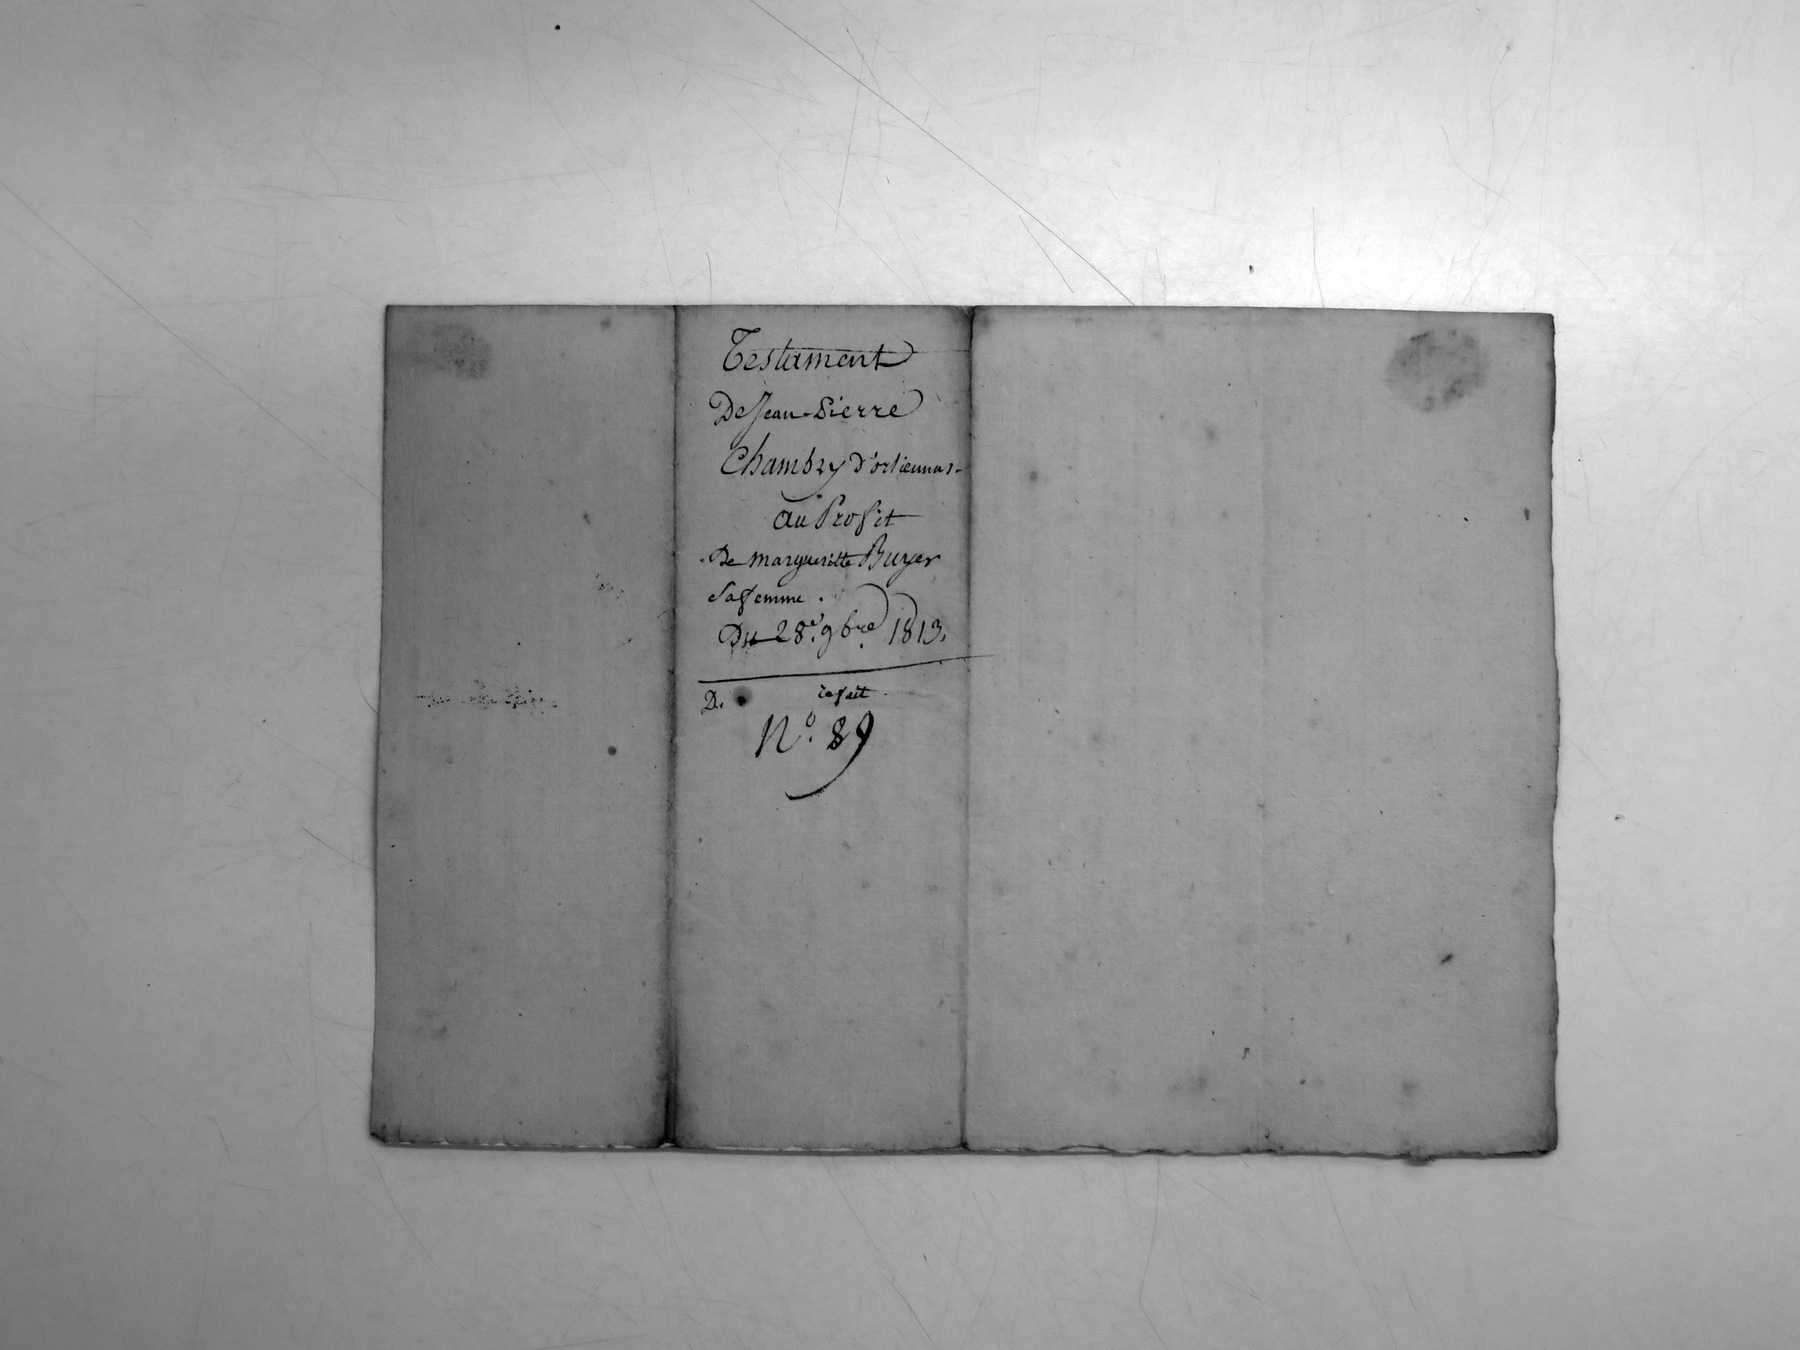 Testament
De Jean-Pierre
Chambry d'ortiennas
au Profit
De margueritte Buyer
Sa femme.
Du 28e. 9bre. 1813.
D.
No. 89